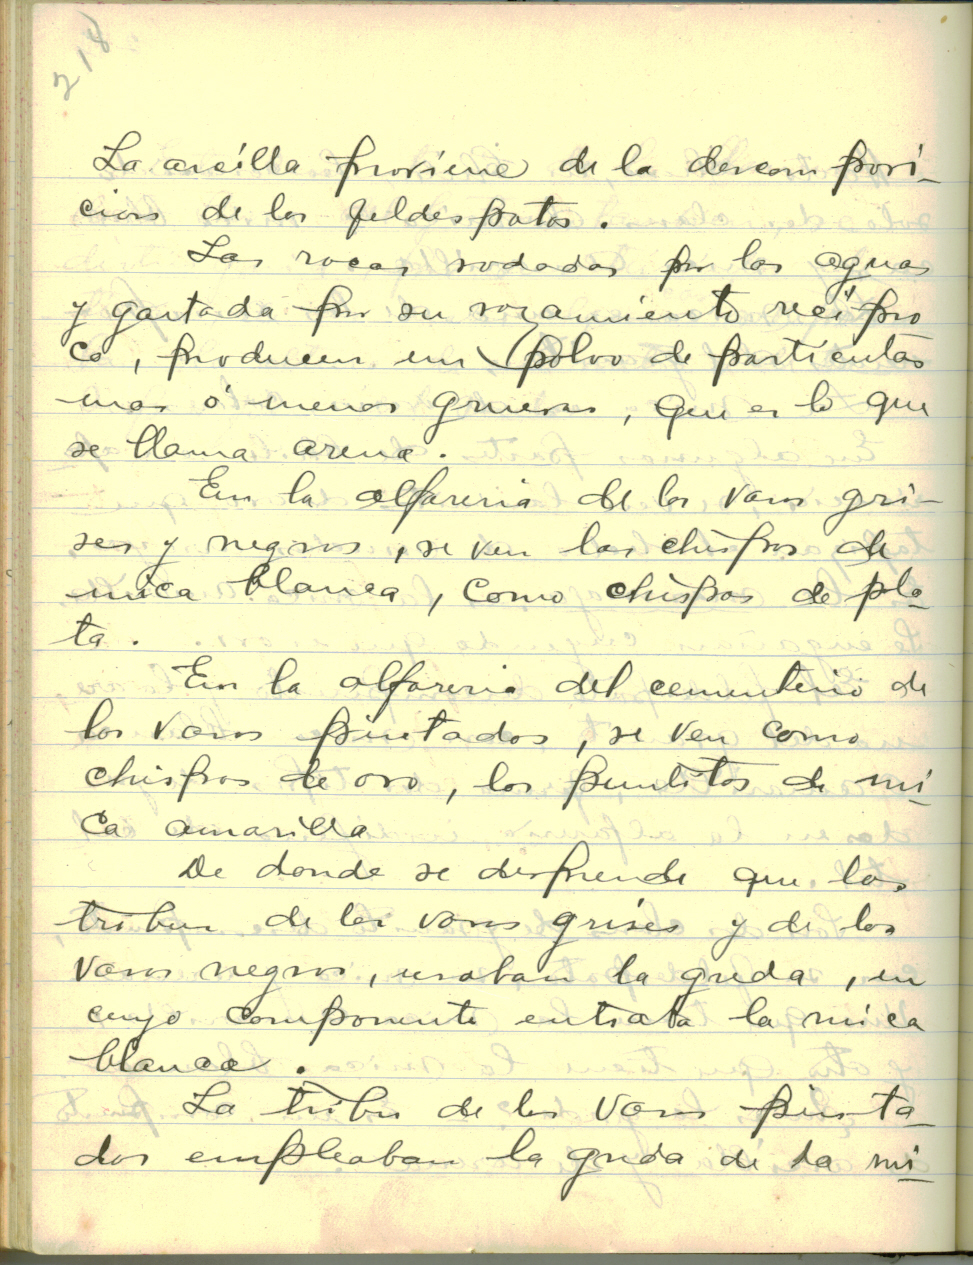 218
La arcilla proviene de la descomposi-
cion de los feldespatos.
Las rocas rodadas por las aguas
y gastada por su rozamiento recipro
co, producen un polvo de particulas
mas ó menos gruesas, que es lo que
se llama arena.
En la alfareria de los vasos gri-
ses y negros, se ven las chispas de
mica blanca, como chispas de pla-
ta.
En la alfareria del cementerio de
los vasos pintados, se ven como
chispas de oro, los puntitos de mi-
ca amarilla
De donde se desprende que las
tribus de los vasos grises y de los
vasos negros, usaban la greda, en
cuyo componente entraba la mica
blanca.
La tribu de los vasos pinta-
dos empleaban la greda de la mi-